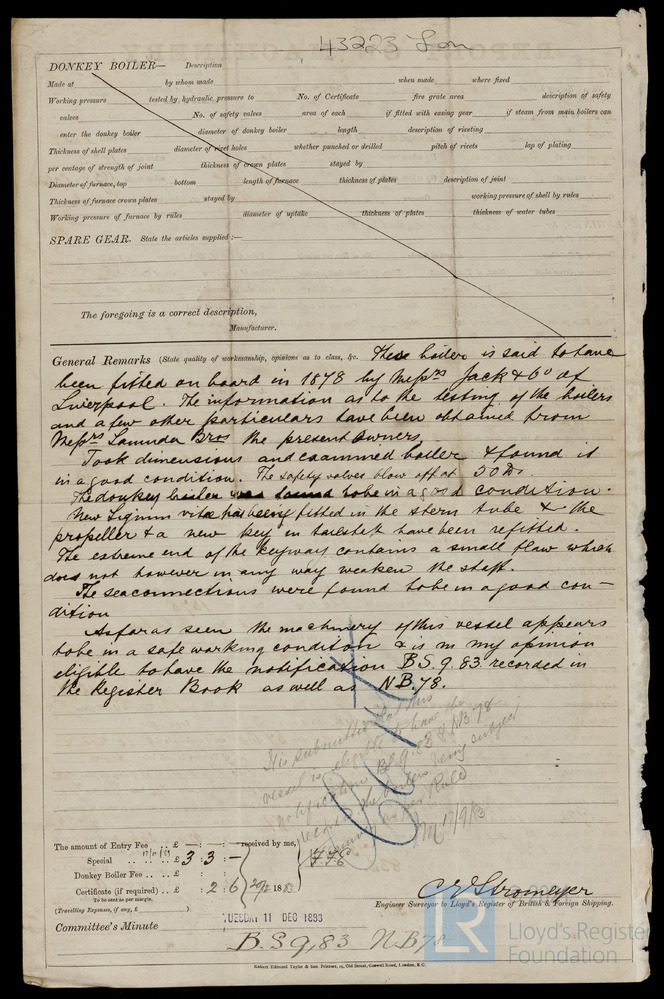 43223 Lon
DONKEY BOILER— Description
Made at by whom made when made where fixed
Working pressure tested by hydraulic pressure to No. of Certificate fire grate area description of safety
valves No. of safety valves area of each if fitted with easing gear if steam from main boilers can
enter the donkey boiler diameter of donkey boiler length description of riveting
Thickness of shell plates diameter of rivet holes whether punched or drilled pitch of rivets lap of plating
per centage of strength of joint thickness of crown plates stayed by
Diameter of furnace, top bottom length of furnace thickness of plates description of joint
Thickness of furnace crown plates stayed by working pressure of shell by rules
Working pressure of furnace by rules diameter of uptake thickness of plates thickness of water tubes
SPARE GEAR. State the articles supplied:—
The foregoing is a correct description,
Manufacturer.
General Remarks (State quality of workmanship, opinions as to class, &c. These boiler is said to have
been fitted on board in 1878 by Messrs Jack & Co of
Liverpool. The information as to the testing of the boilers
and a few other particulars have been obtained from
Messrs Bros the present owners.
Took dimensions and examined boiler & found it
in a good condition. The safety valves blow off at 50 lbs.
The donkey boiler was found to be in a good condition.
New Lignum vitæ has being fitted in the stern tube & the
propeller & a new key in tailshaft have been refitted.
The extreme end of the keyway contains a small flaw which
does not however in any way weaken the shaft.
The seaconnections were found to be in a good con-
dition
As far as seen the machinery of this vessel appears
to be in a safe working condition & is in my opinion
eligible to have the notification B.S. 9.83 recorded in
the Register Book as well as NB.78.
It is submitted that this
vessel is eligible to have the
notification BS 9.83 & NB 78
the boilers being subject
17/9/83
The amount of Entry Fee .. £ — : — : — received by me,
Special .. .. £ 3 : 3 : —
Donkey Boiler Fee .. .. £
Certificate (if required) .. £ : 2 : 6 18
To be sent as per margin.
(Travelling Expenses, if any, £ )
C E Stromeyer
Engineer Surveyor to Lloyd's Register of British & Foreign Shipping.
Committee's Minute
TUESDAY 11 DEC 1883
B.S 9,83 NB78
Robert Edmund Taylor & Son Printers, 19, Old Street, Goswell Road, London, E.C.
LR
Lloyd's Register
Foundation